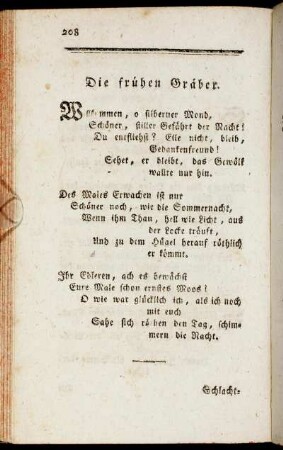 208
Die frühen Gräber.
Willkommen, o silberner Mond,
Schöner, stiller Gefährt der Nacht!
Du entfliehst? Eile nicht, bleib,
Gedankenfreund!
Sehet, er bleibt, das Gewölk
wallte nur hin.
Des Maies Erwachen ist nur
Schöner noch, wie die Sommernacht,
Wenn ihm Thau, hell wie Licht, aus
der Locke träuft,
Und zu dem Hügel herauf röthlich
er kömmt.
Ihr Edleren, ach es bewächst
Eure Male schon ernstes Moos!
O wie war glücklich ich, als ich noch
mit euch
Sahe sich röthen den Tag, schim-
mern die Nacht.
Schlacht-